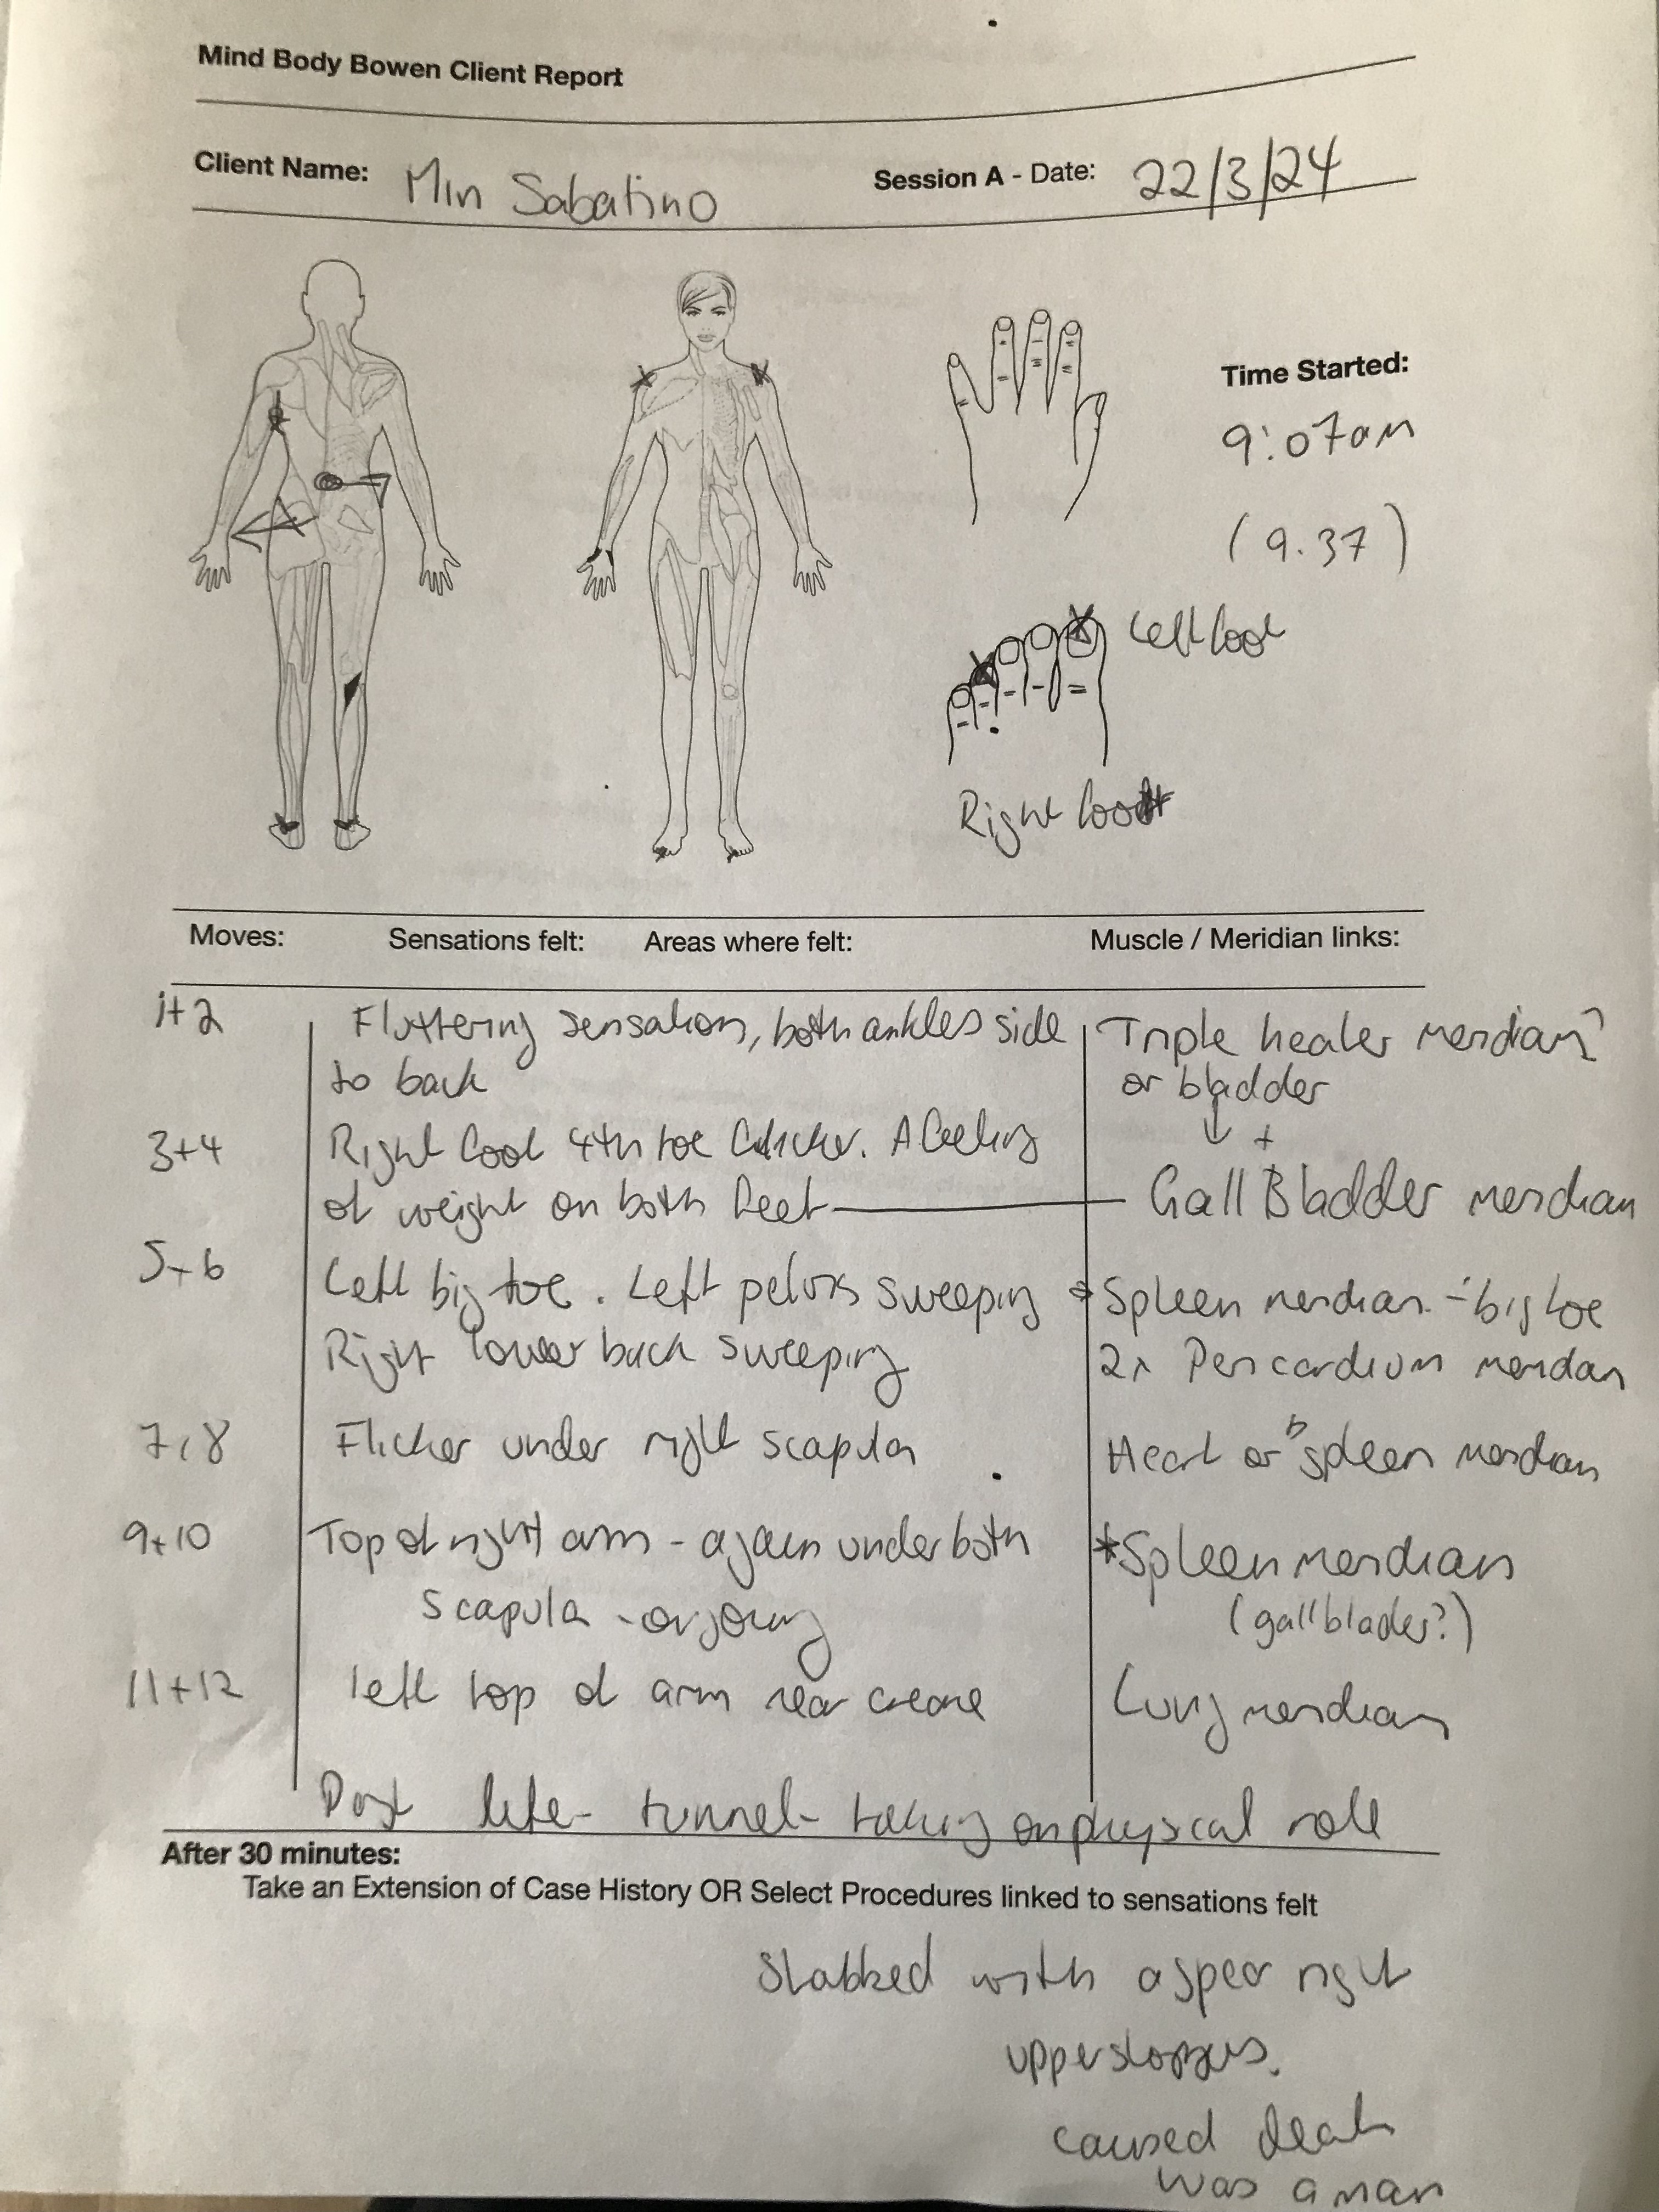 Mind Body Bowen Client Report
Client Name: Min Sabatino
Session A - Date: 22/3/24
Time Started:
9:07am
(9.37)
Left foot
Right foot
Moves: Sensations felt: Areas where felt: Muscle / Meridian links:
1+2 Fluttering sensation, both ankles side Triple healer meridian?
to back or bladder
↓ +
3+4 Right foot 4th toe flicker. A feeling
of weight on both feet — Gall Bladder meridian
5+6 Left big toe. Left pelvis sweeping * Spleen meridian - big toe
Right lower back sweeping 2x Pericardium meridan
7,8 Flicker under right scapula Heart or spleen meridian
9+10 Top of right arm - again under both *Spleen meridian
scapula - ongoing (gallblader?)
11+12 left top of arm near crease Lung meridian
Past life - tunnel - taking on physical role
After 30 minutes:
Take an Extension of Case History OR Select Procedures linked to sensations felt
Stabbed with a spear right
upper
caused death
was a man